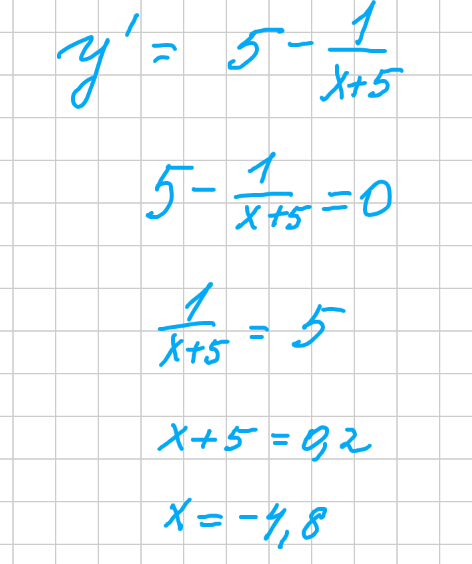 y' = 5 - 1/(x+5)
5 - 1/(x+5) = 0
1/(x+5) = 5
x+5 = 0,2
x = -4,8